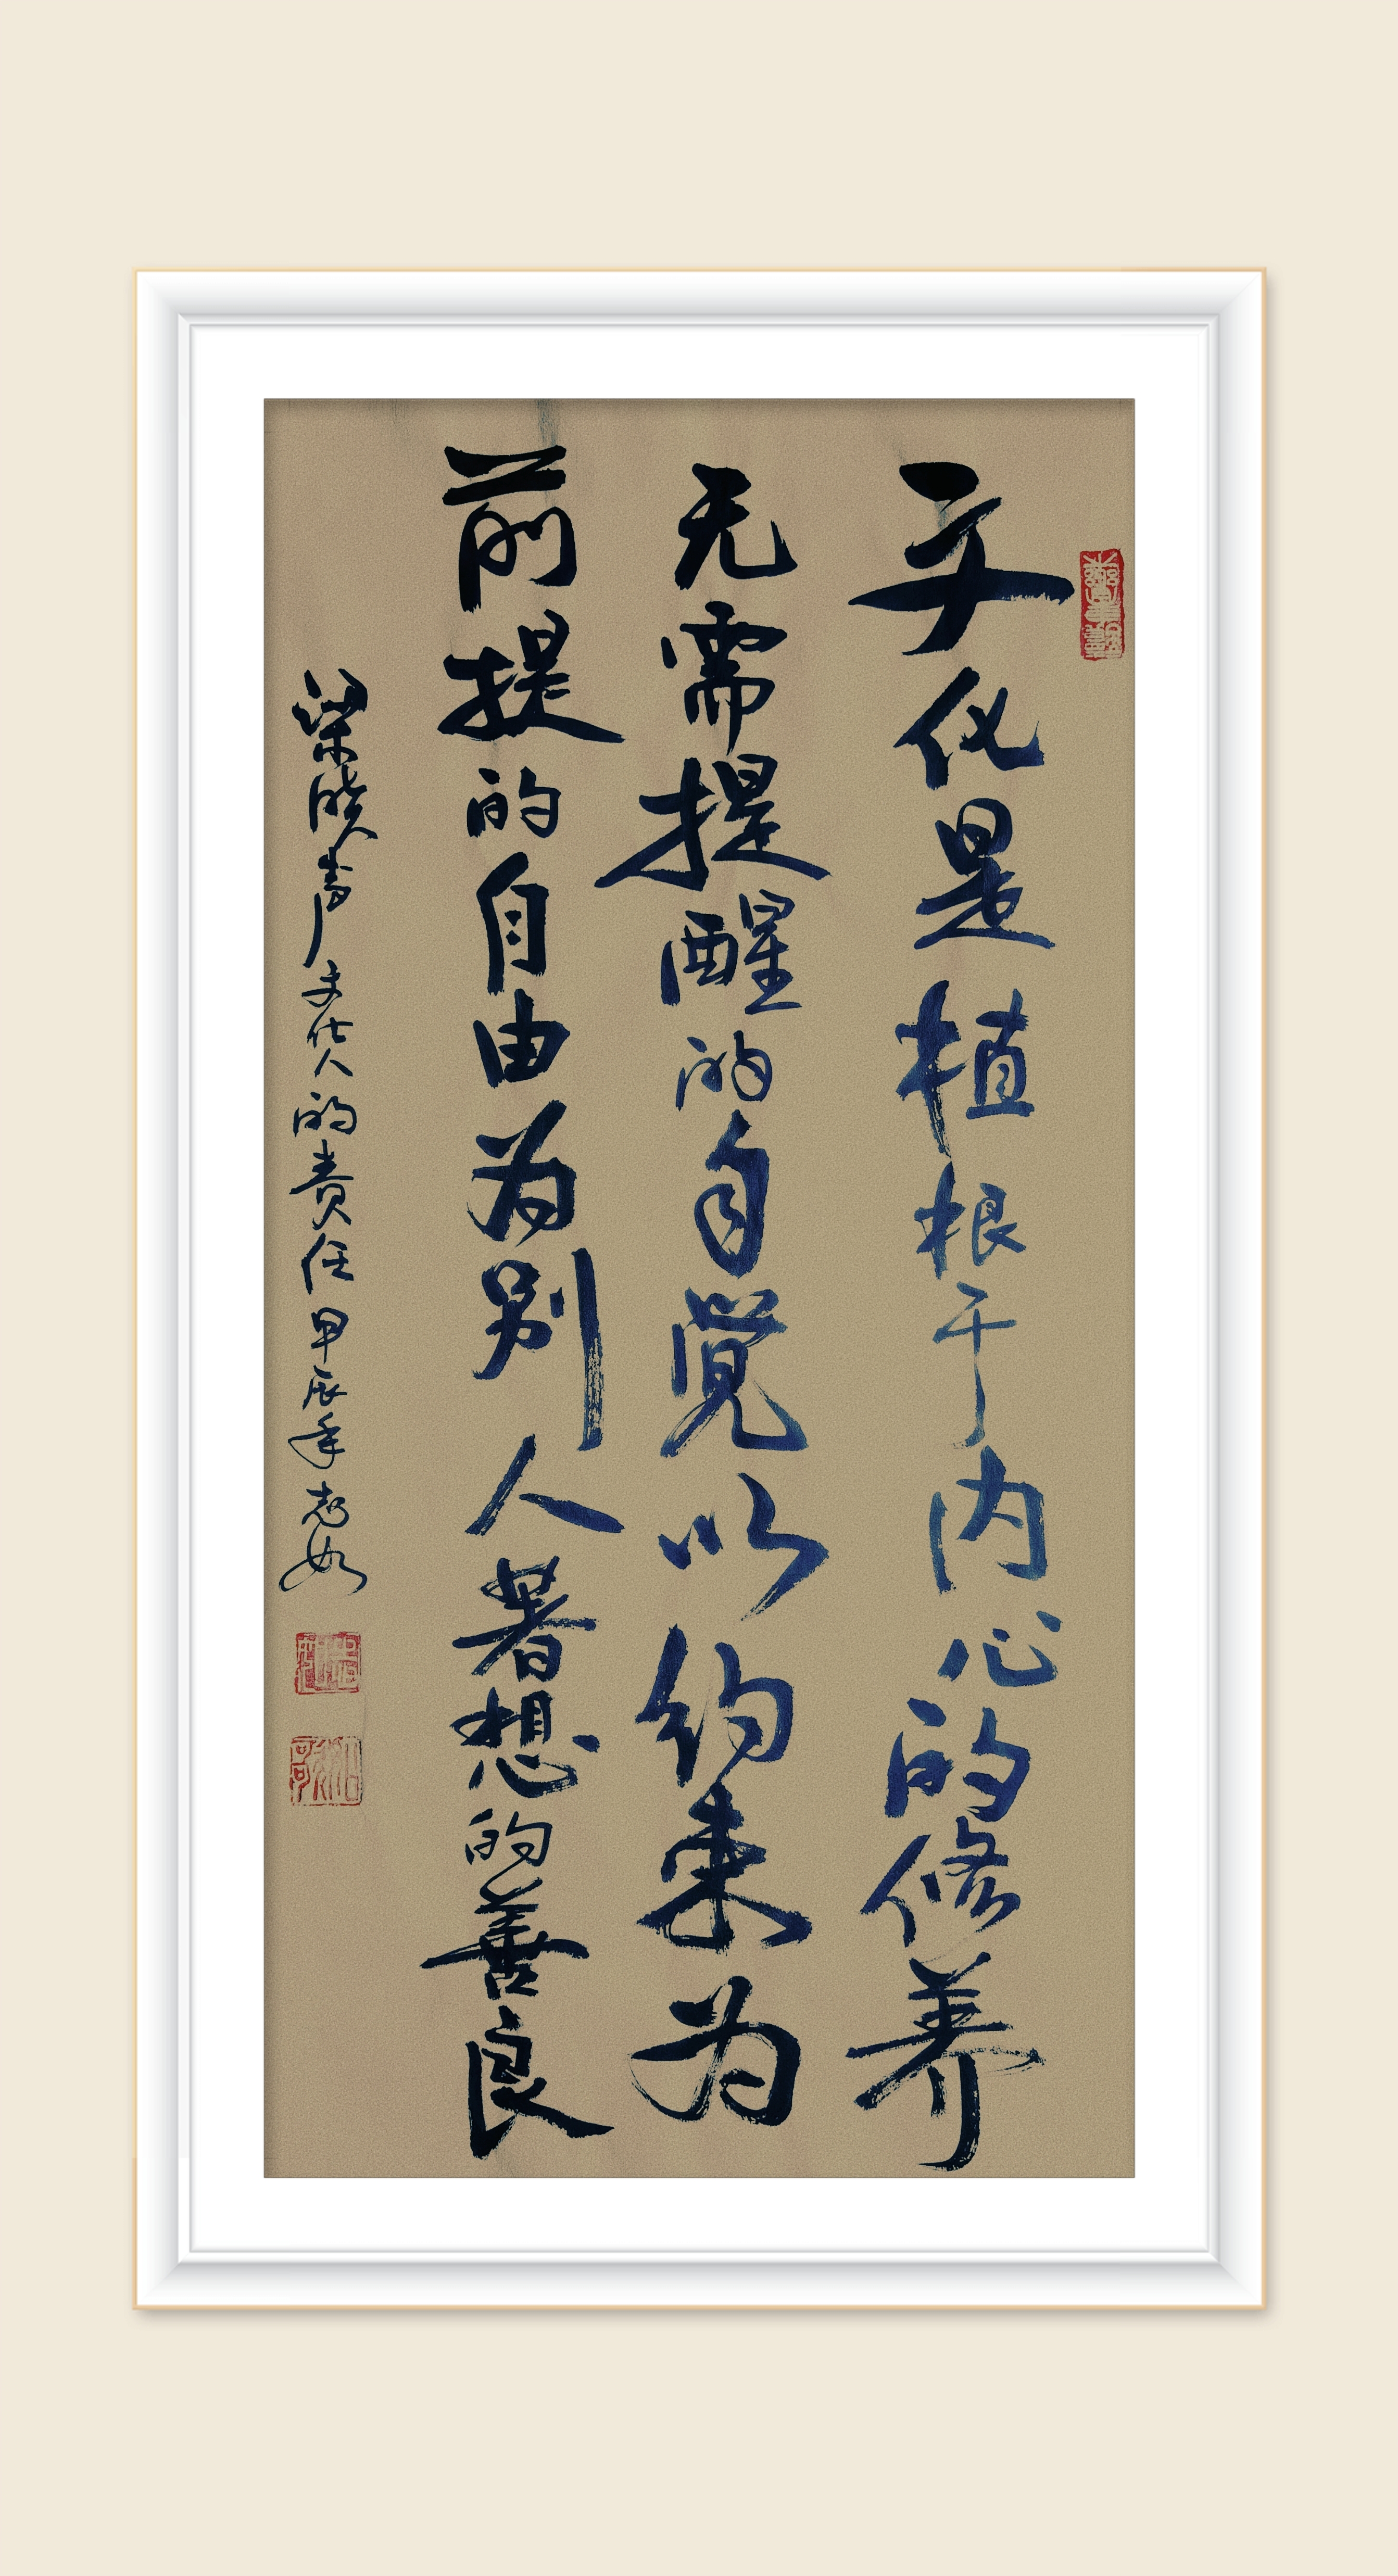 文化是植根于内心的修养
无需提醒的自觉以约束为
前提的自由为别人着想的善良
梁晓声文化人的责任甲辰年志如